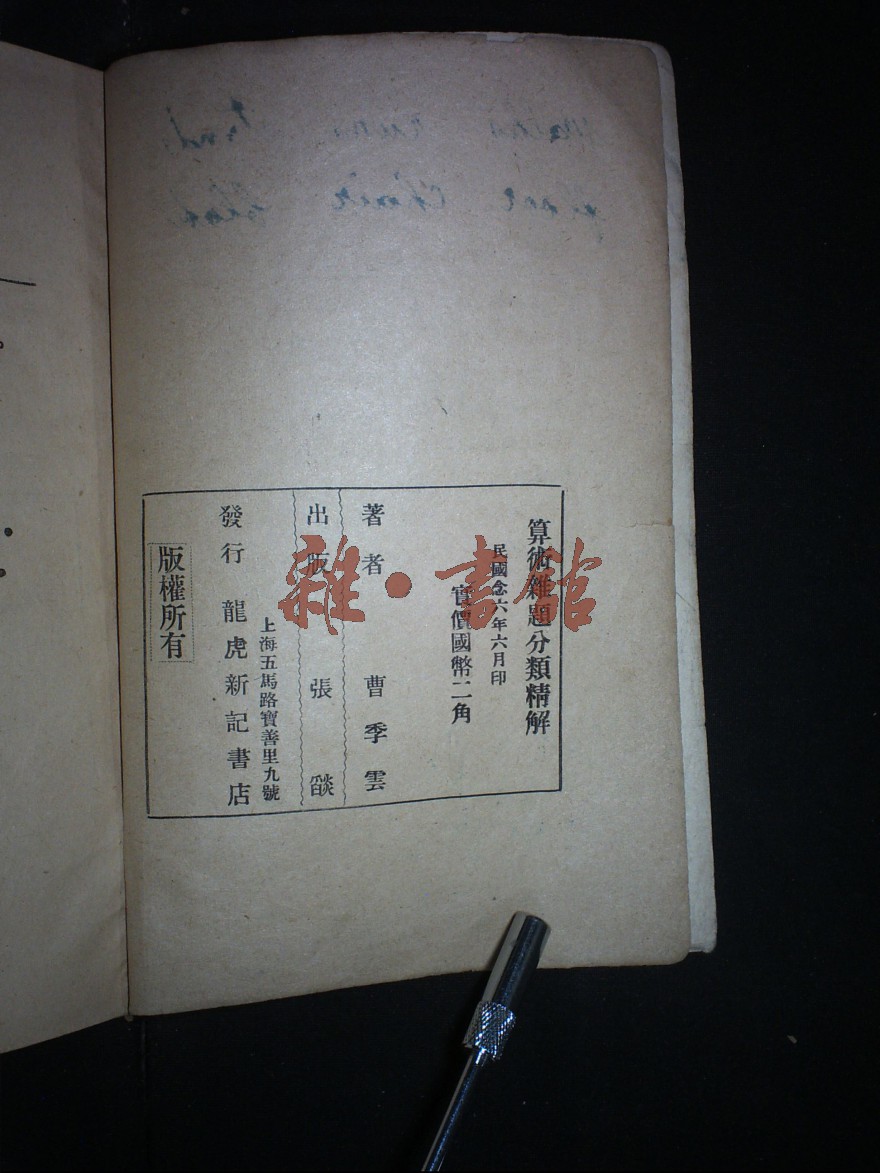 算術雜題分類精解
民國念六年六月印
實價國幣二角
著者 曹季雲
出版 張燄
上海五馬路寶善里九號
發行 龍虎新記書店
版權所有
雜·書館